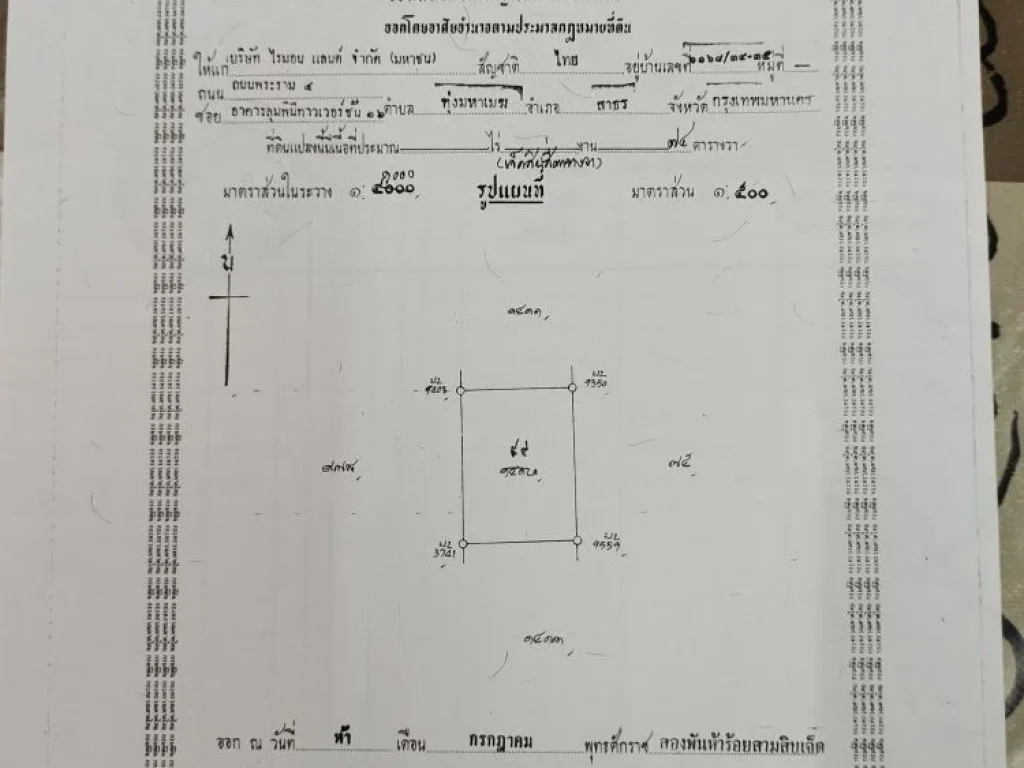 ออกโดยอาศัยอำนาจตามประมวลกฎหมายที่ดิน
ให้แก่ บริษัท ไรมอน แลนด์ จำกัด (มหาชน) สัญชาติ ไทย อยู่บ้านเลขที่ ๑๑๖๘/๓๔-๓๕ หมู่ที่ —
ถนน ถนนพระราม ๔
ซอย อาคารลุมพินีทาวเวอร์ชั้น ๑๖ ตำบล ทุ่งมหาเมฆ อำเภอ สาธร จังหวัด กรุงเทพมหานคร
ที่ดินแปลงนี้มีเนื้อที่ประมาณ ไร่ งาน ๗๔ ตารางวา
(เจ็ดสิบสี่ตารางวา)
๑๐๐๐
มาตราส่วนในระวาง ๑: ๔๐๐๐ รูปแผนที่ มาตราส่วน ๑: ๕๐๐
น
๑๔๓๑
ป2 ป2
9403 9350
๕๙
๙๗๘ ๑๔๓๒ ๗๕
ป2 ป2
3741 9559
๑๔๓๓
ออก ณ วันที่ ห้า เดือน กรกฎาคม พุทธศักราช สองพันห้าร้อยสามสิบเจ็ด